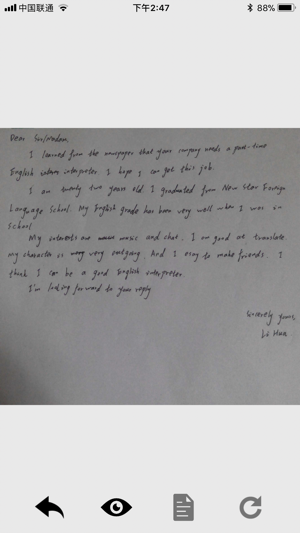 中国联通
下午2:47
88%
Dear Sir/Madam,
I learned from the newspaper that your company needs a part-time
English interpreter. I hope I can get this job.
I am twenty two years old. I graduated from New Star Foreign
Language School. My English grade has been very well when I was in
School
My interests are music and chat. I am good at translate.
My character is very outgoing. And I easy to make friends. I
think I can be a good English interpreter.
I'm looking forward to your reply
Sincerely yours,
Li Hua